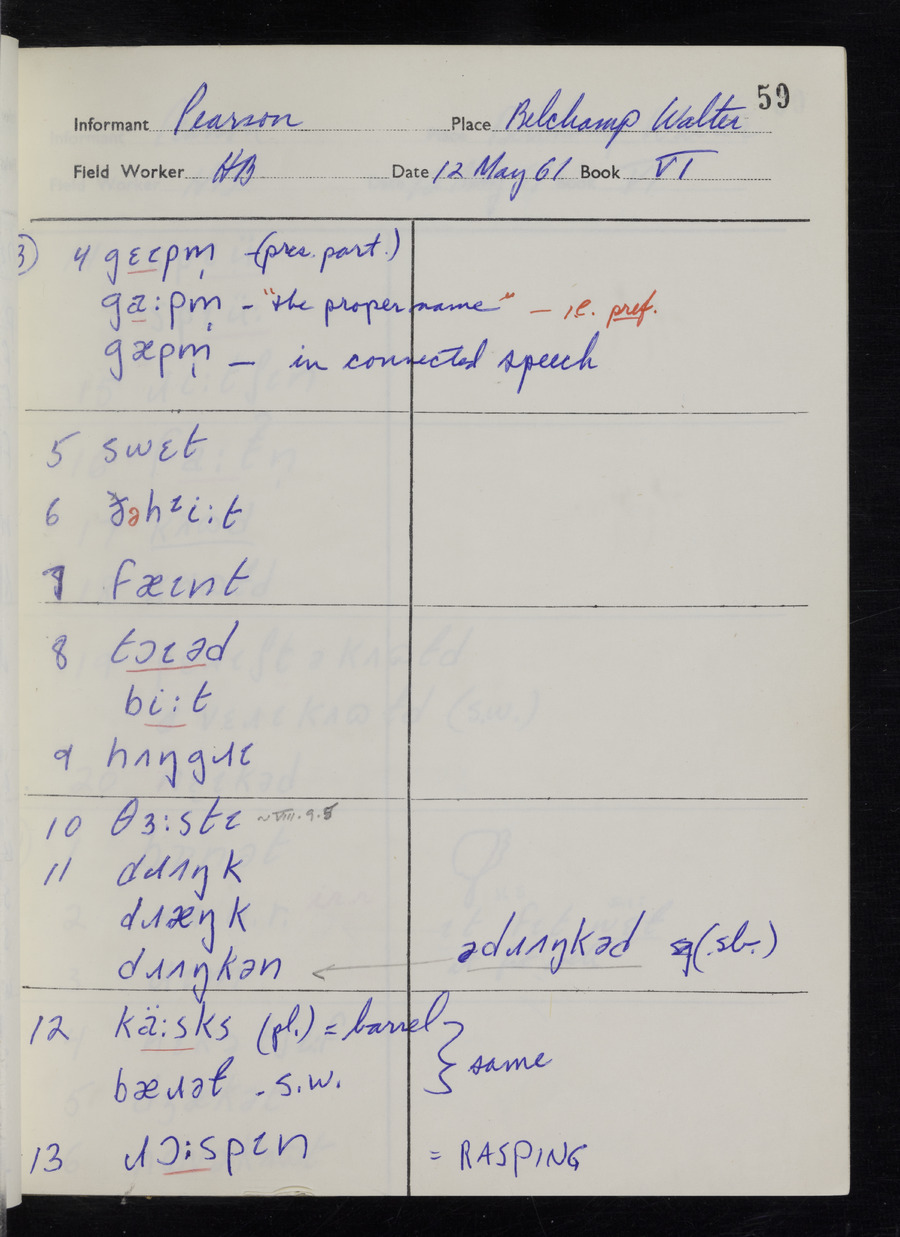 59
Informant Pearson Place Belchamp Walter
Field Worker HB Date 12 May 61 Book VI
3) 4 gɛɪpm̩ - (pres. part.)
ga:pm̩ - "the proper name" - i.e. pref.
gæpm̩ - in connected speech
5 swɛt
6 ðəhᶦi:t
7 fæɪnt
8 tɔɪəd
bi:t
9 hʌŋgɹɪ
10 θɜ:stɪ ~VIII.9.5
11 dɹʌŋk
dɹæŋk
dɹʌŋkən ← ədɹʌŋkəd (sb.)
12 kä:sks (pl.) = barrel } same
bæɹəl - s.w.
13 ɹɔ:spɪn = RASPING